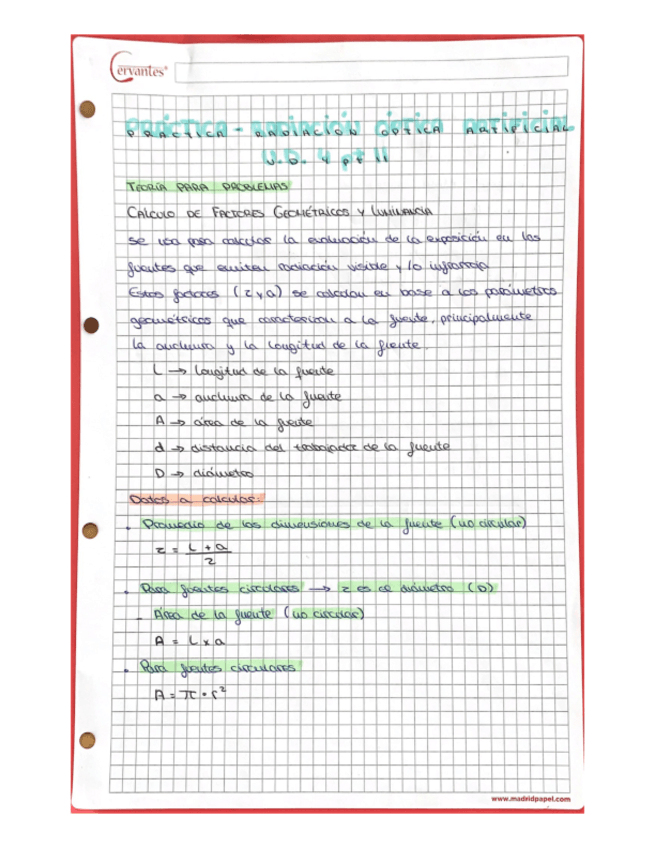 Cervantes®
PRÁCTICA - RADIACIÓN ÓPTICA ARTIFICIAL
U.D. 4 pt II
TEORÍA PARA PROBLEMAS
CÁLCULO DE FACTORES GEOMÉTRICOS Y LUMINANCIA
se usa para calcular la evaluación de la exposición en las
fuentes que emiten radiación visible y/o infrarroja
Estos factores (z y α) se calculan en base a los parámetros
geométricos que caracterizan a la fuente, principalmente
la anchura y la longitud de la fuente.
L → longitud de la fuente
a → anchura de la fuente
A → área de la fuente
d → distancia del trabajador de la fuente
D → diámetro
Datos a calcular:
• Promedio de las dimensiones de la fuente (no circular)
z = L + a
2
• Para fuentes circulares → z es el diámetro (D)
- Área de la fuente (no circular)
A = L x a
• Para fuentes circulares
A = π · r²
www.madridpapel.com